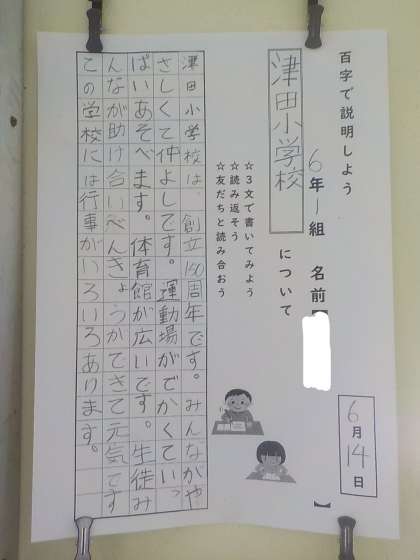 百字で説明しよう
6年1組 名前【 】
津田小学校 について
☆3文で書いてみよう
☆読み返そう
☆友だちと読み合おう
6月14日
津田小学校は、創立150周年です。みんながや
さしくて仲よしです。運動場がでかくていっ
ぱいあそべます。体育館が広いです。生徒み
んなが助け合いべんきょうができて元気です
この学校には行事がいろいろあります。